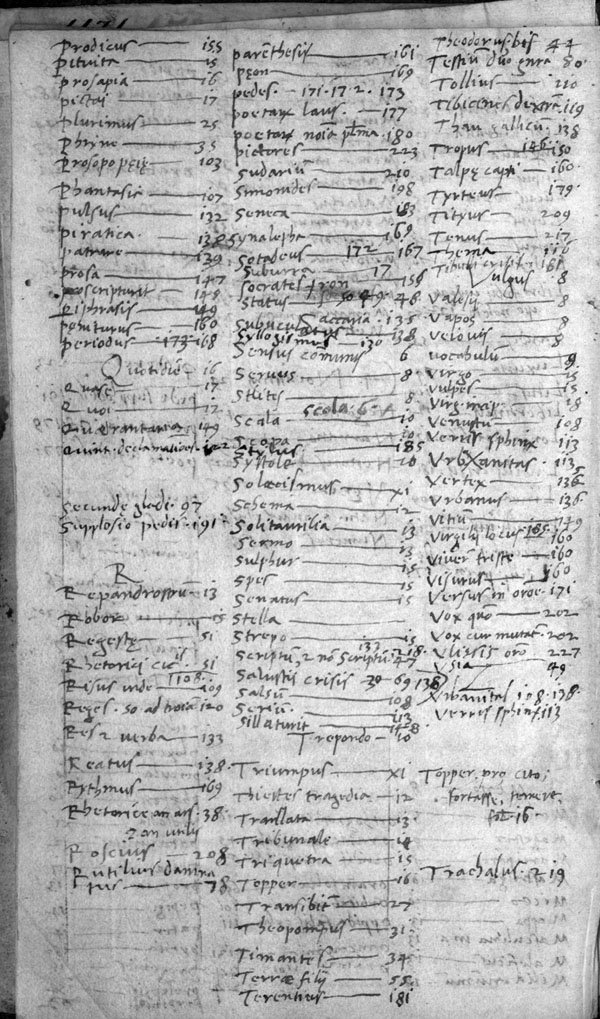 Prodicus 155
Pituita 15
prosapia 16
pistai 17
Plurimus 25
Phryne 35
Prosopopeię 103
Phantasia 107
pulsus 132
piratica 138
patrare 139
prosa 147
proscripturit 148
Piphrasis 149
periturus 160
Periodus 173 168
Quotidie 16
Quase 17
Quoi 12
Quadrantaria 149
Quint. declamationes 122
Secunde gladi 97
Supplosio pedis 191
R
Repandrostrū 13
Robor 15
Regestę 51
Rhetorici cic 51
Risus unde 109
Reges. so ad troia 120
Res 2 verba 133
Reatus 138
Rythmus 169
Rhetorice an ars 38
2 an utilis
Roscius 208
Rutilius damna
tus 78
parēthesis 161
pęon 169
pedes. 171. 17.2. 173
poetarū laus. 177
poetarū noīa plma. 180
pictores 223
Sudariū 210
Simonides 198
Seneca 183
Synalepha 169
Sotadeus 172 167
Suburra 17
Socrates 156
Status 50 49. 46
Saccaria 135
Subucula
Syllogismus 130 138
Sensus comunis 6
Seruus 8
Stlites 8
Scola. 6
Scala 10
Scopa 10
Stylus 155
Systole 10
Solœcismus xi
Schema 12
Solitaurilia 13
Sermo 13
Sulphur 15
Spes 15
Senatus 15
Stella
Strepo 15
Scriptū, 2 nō Scriptū 47
Salustii crisis 69 136
Salsū 108
Seriū 113
Sillaturit 148
Trepondo 10
Triumpus xi
Thiestes tragedia 12
Translata 13
Tribunale 14
Triquetra 15
Topper 16
Transibit 27
Theopompus 31
Timantes 34
Terræ filij 55
Terentius 181
Theodorus bis 44
Testiū duo gnra 80
Tollius 210
Tibicenes dextra 119
Thau gallicū. 138
Tropus 146 150
Talpę capti 160
Tyrteus 179
Tityrus 209
Tenus 217
Thema 112
Vulgus 8
Valesij 8
Vapos 8
Velouis 8
vocabulū 9
Virgo 15
Vulpes 15
Virg. maj. 18
Venustū 108
Verris sphinx 113
Vrbanitas 113
Vertex 136
Vrbanus 136
Vitiū 149
Virgilij locus 185. 160
Viuer triste 160
Visurus 160
Versus in orōe. 171
Vox quō 202
Vox cur mutat. 202
Vlissis orō. 227
Vsia 49
Vrbanitas 108. 178
Verris sphinx 113
Topper, pro cito,
fortasse, temere
fol. 16.
Trachalus. 219